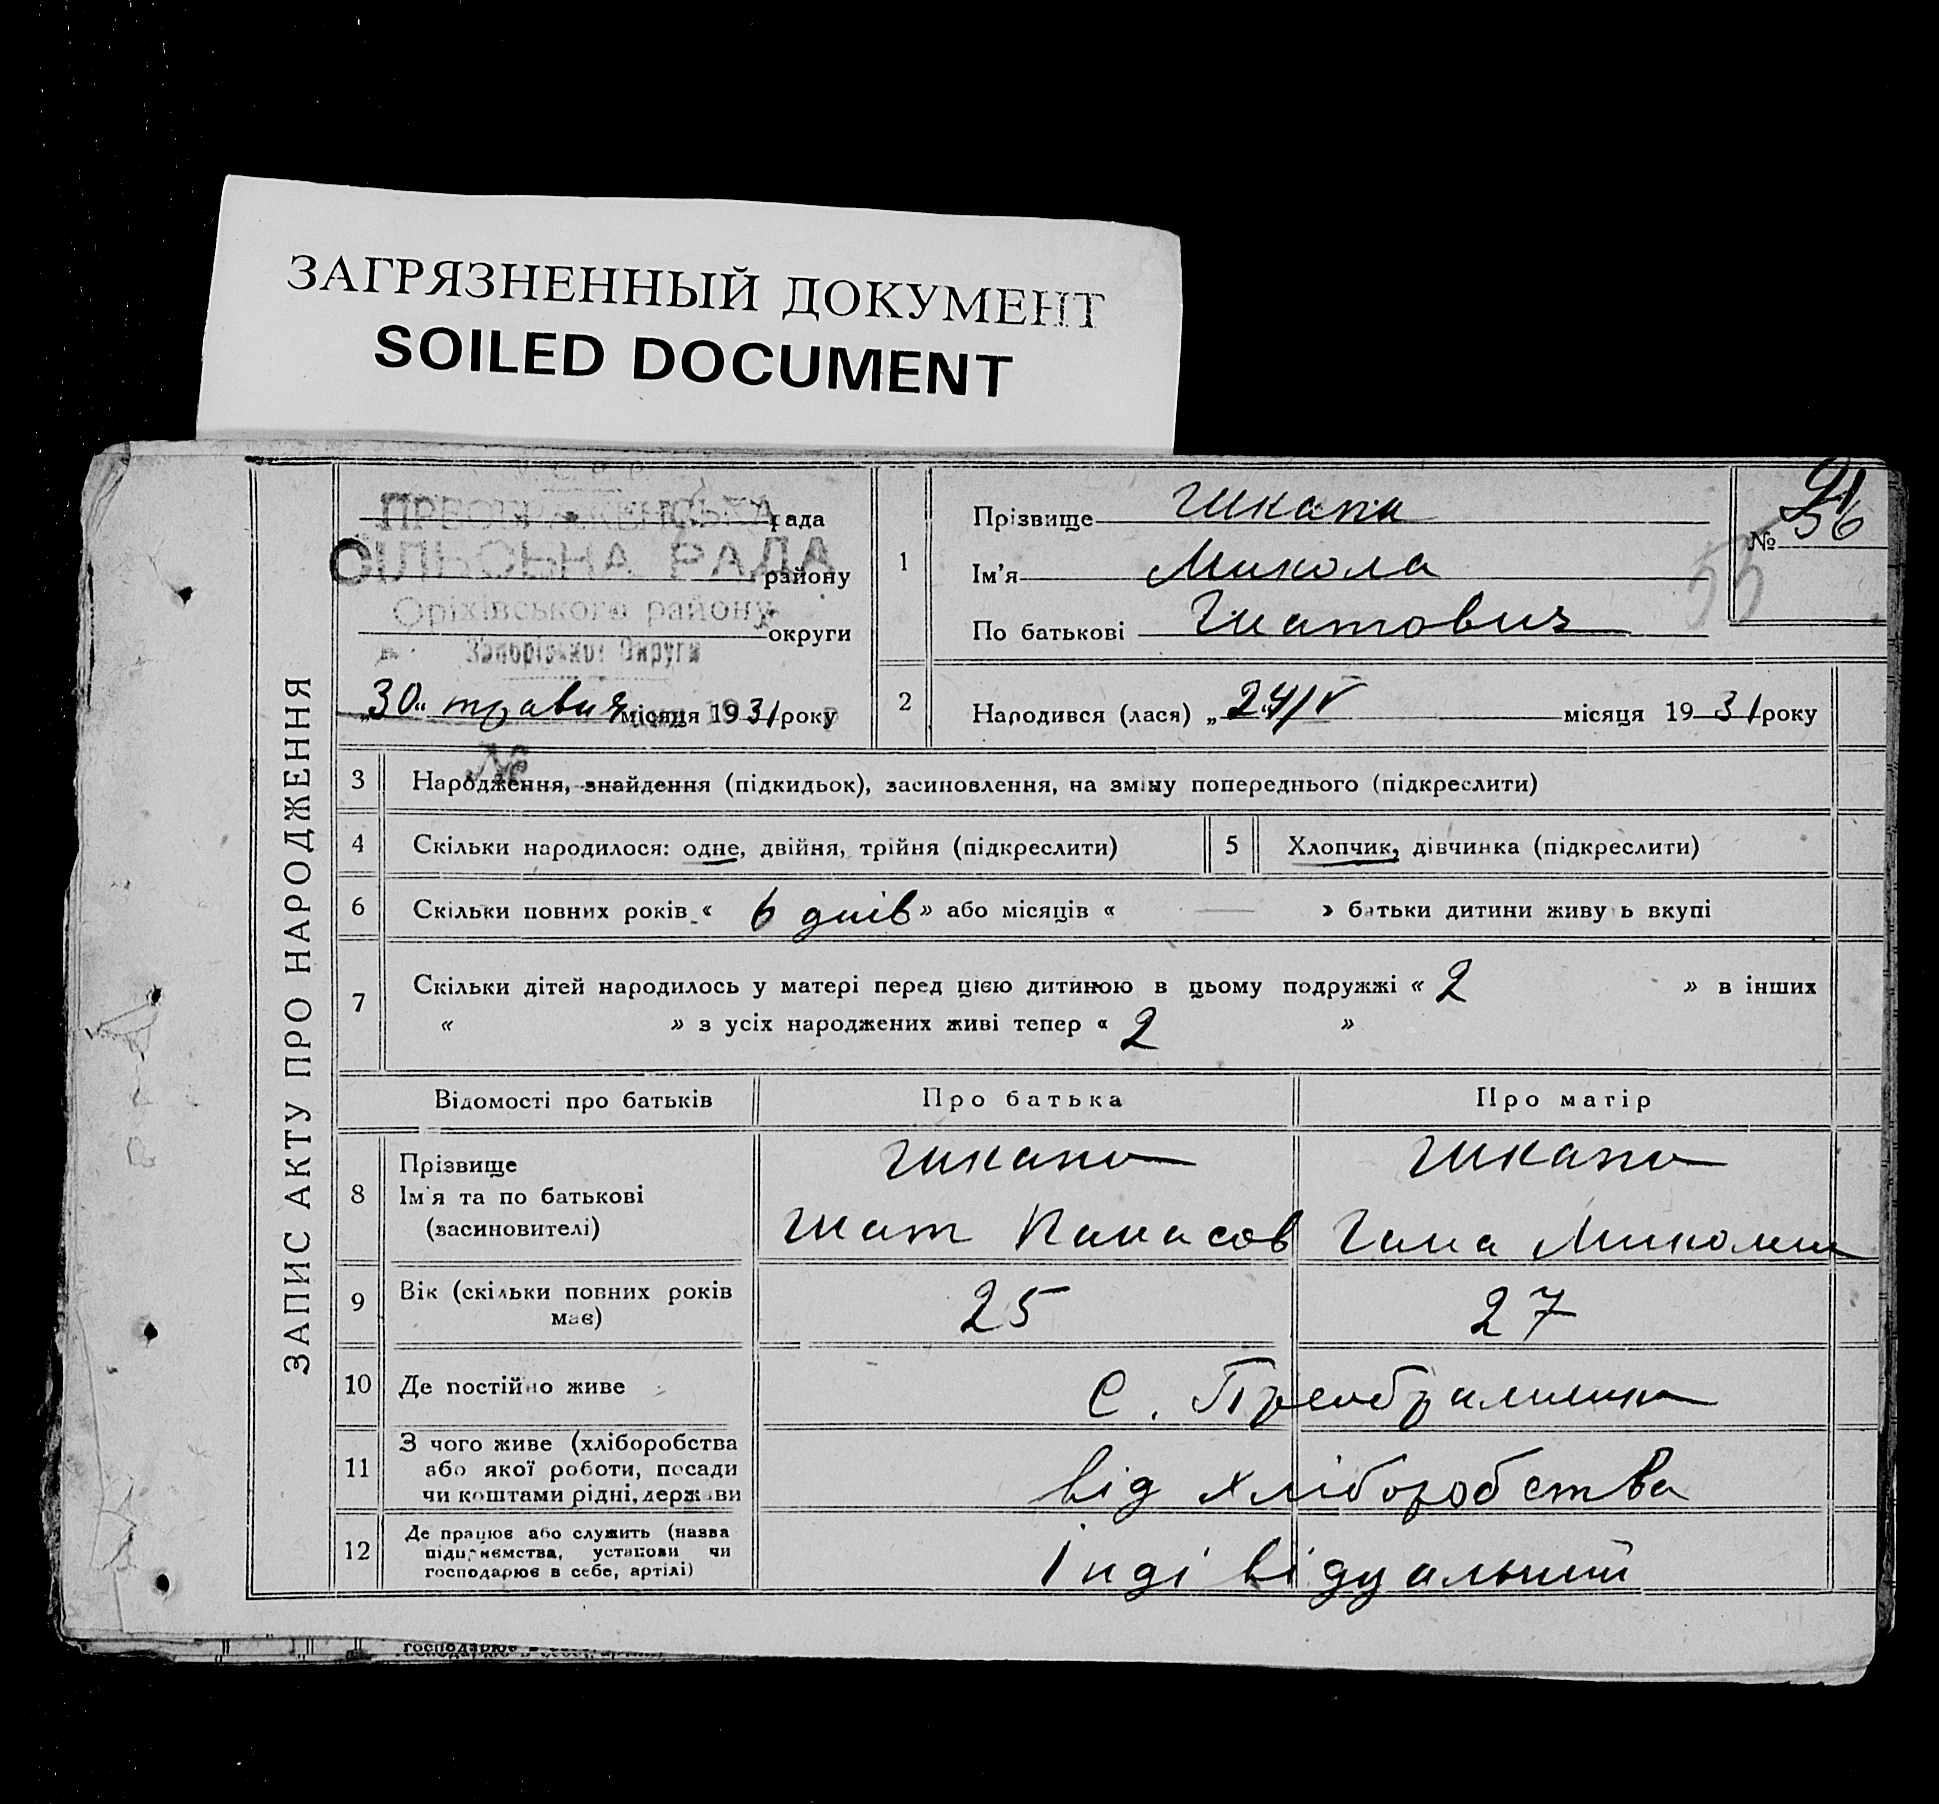 ЗАГРЯЗНЕННЫЙ ДОКУМЕНТ
SOILED DOCUMENT
ЗАПИС АКТУ ПРО НАРОДЖЕННЯ
ПРЕОБРАЖЕНСЬКА рада
СІЛЬСЬКА РАДА району
Оріхівського району
округи
Запорізької Округи
„30" травня місяця 1931 року
№
1 Прізвище Шкапа
Ім'я Микола
По батькові Гнатович
№ 56
55
2 Народився (лася) „24/V місяця 1931 року
3 Народження, знайдення (підкидьок), засиновлення, на зміну попереднього (підкреслити)
4 Скільки народилося: одне, двійня, трійня (підкреслити)
5 Хлопчик, дівчинка (підкреслити)
6 Скільки повних років « 6 днів » або місяців « — » батьки дитини живуть вкупі
7 Скільки дітей народилось у матері перед цією дитиною в цьому подружжі « 2 » в інших
« » з усіх народжених живі тепер « 2 »
Відомості про батьків Про батька Про матір
8 Прізвище Шкапа Шкапа
Ім'я та по батькові
(засиновителі) Гнат Панасов Гана Миколаи
9 Вік (скільки повних років
має) 25 27
10 Де постійно живе с. Преображенка
11 З чого живе (хліборобства
або якої роботи, посади
чи коштами рідні, держави
від хліборобства
12 Де працює або служить (назва
підприємства, установи чи
господарює в себе, артілі)
Індівідуальний
господарює в себе, артілі)